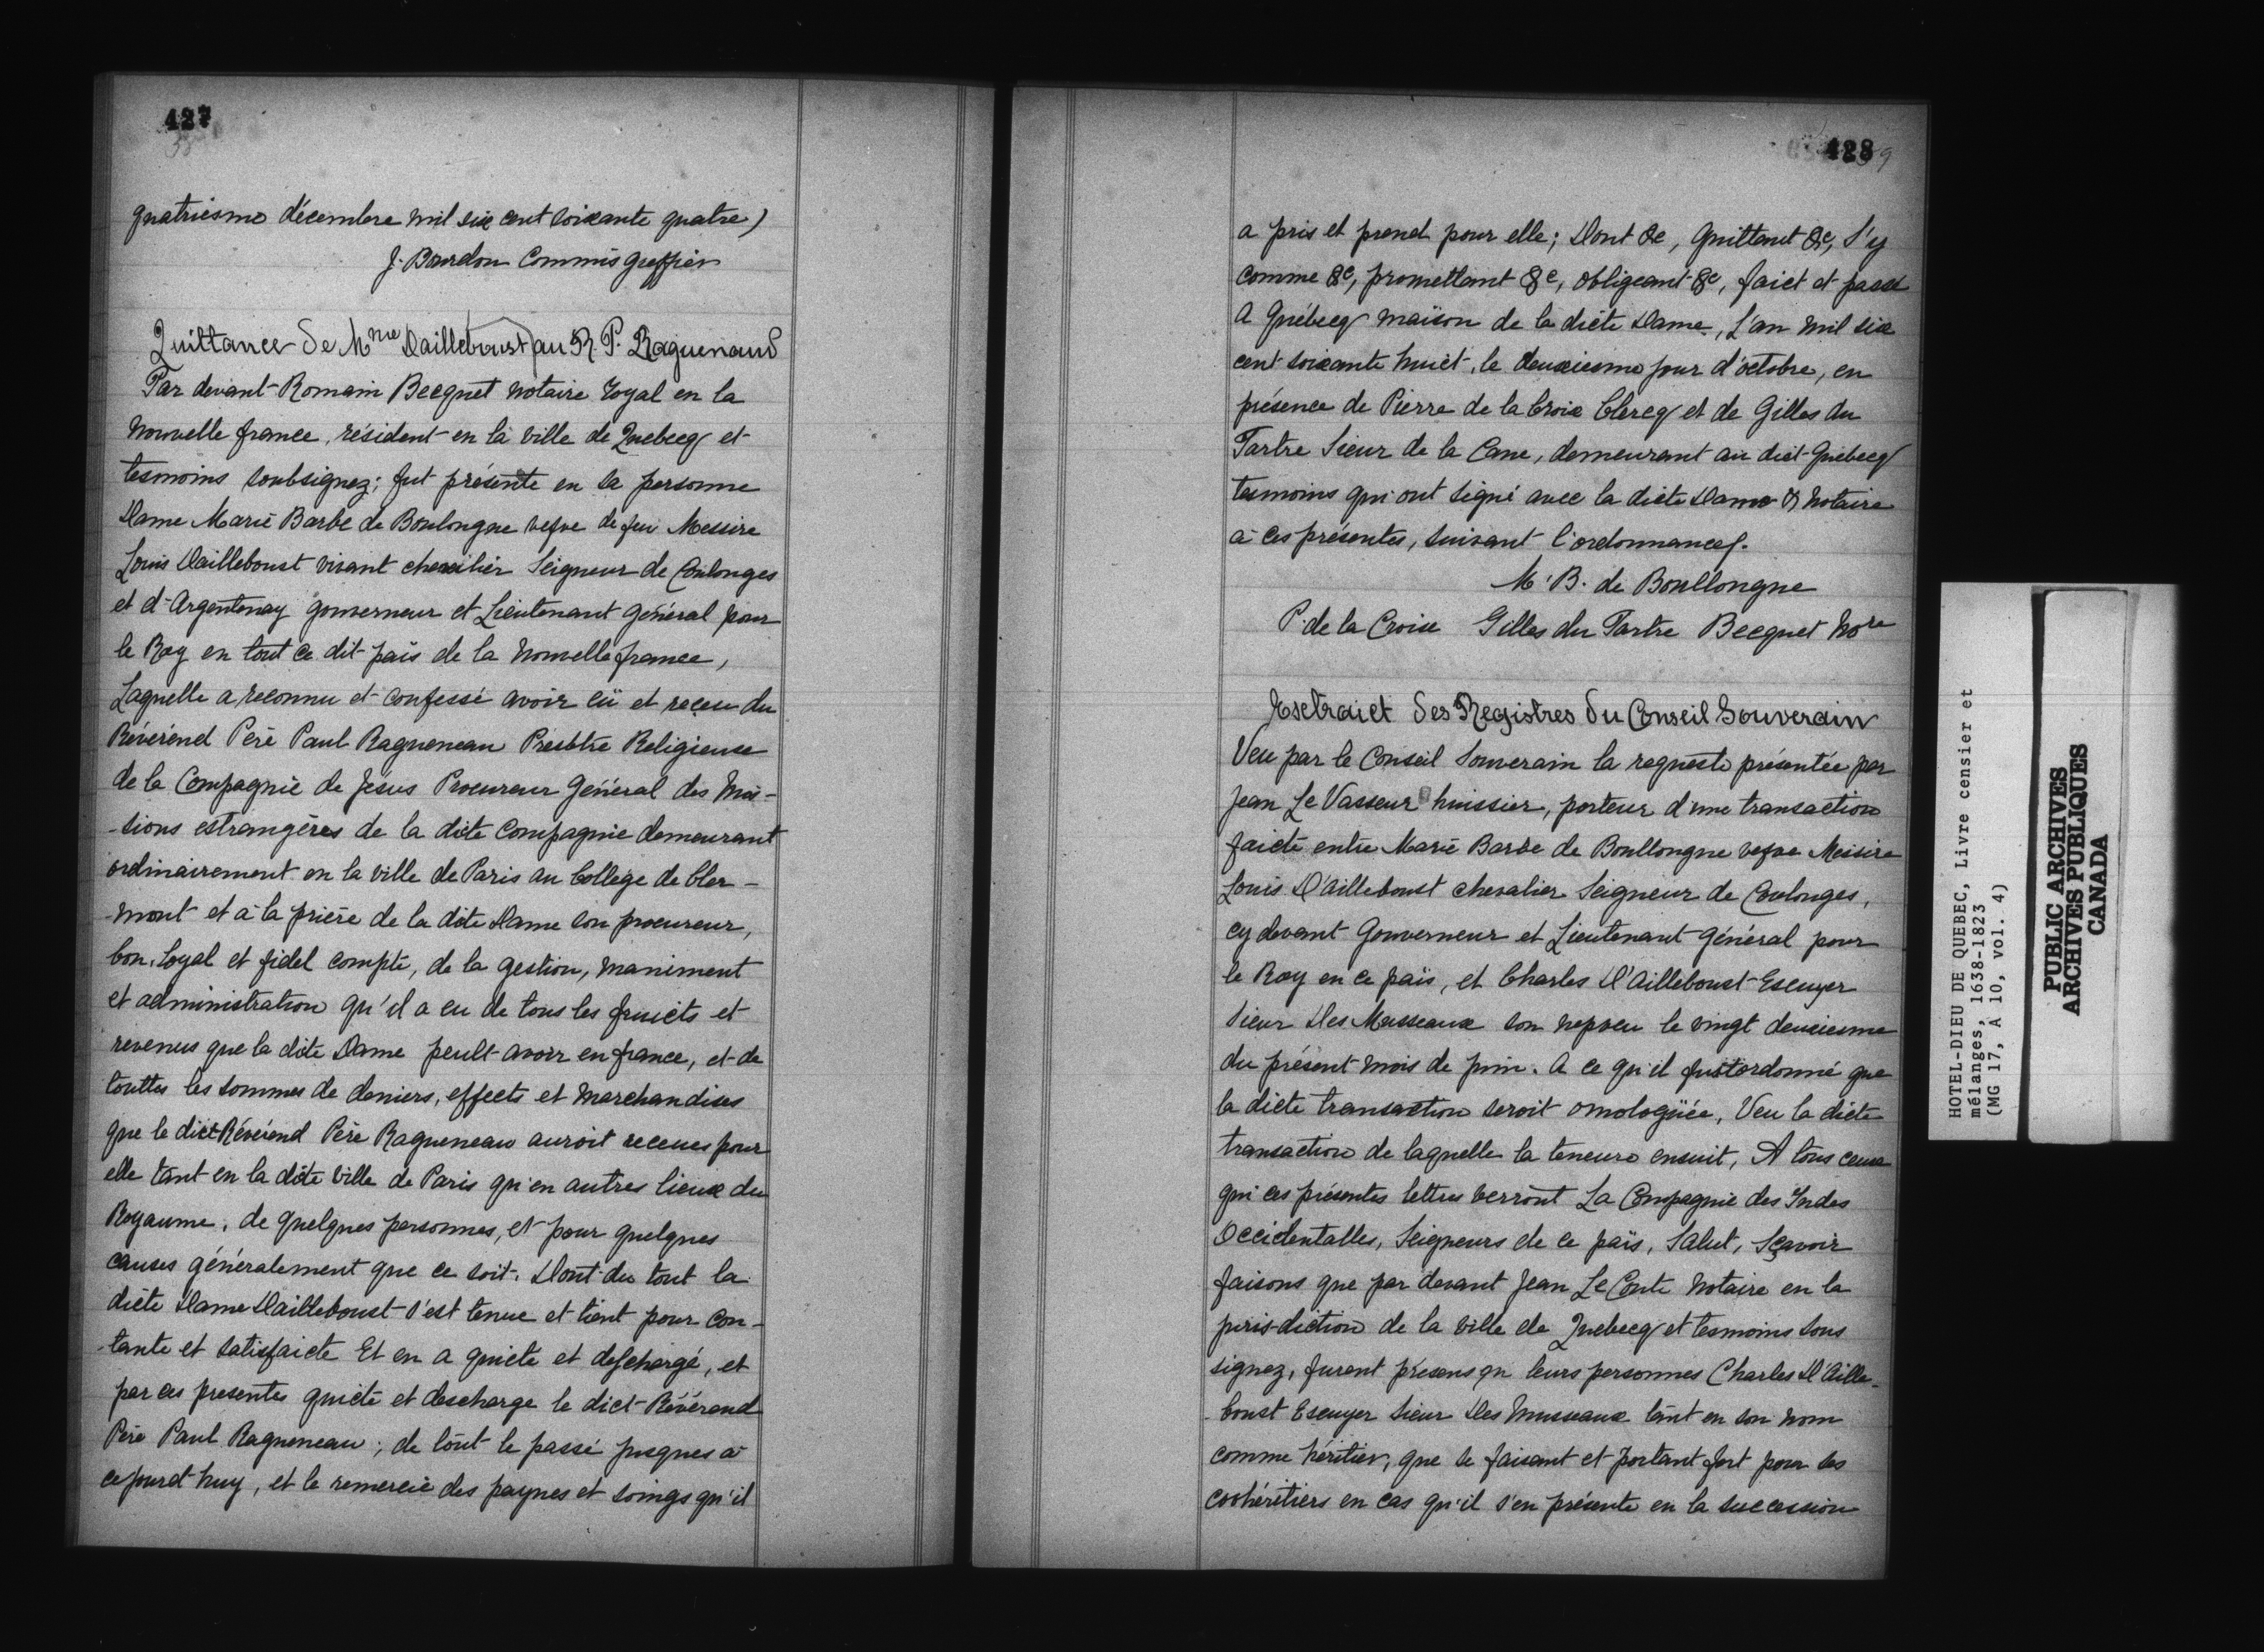 427
38
quatriesme décembre mil six cent soixante quatre)
J. Bourdon Commis Greffier
Quittance de Mme Dailleboust au R. P. Raguenaud
Par devant Romain Becquet notaire Royal en la
nouvelle france, résident en la ville de Quebecq et
tesmoins soubsignez; fut présente en sa personne
Dame Marie Barbe de Boulongne vefve de feu Messire
Louis Dailleboust vivant chevalier Seigneur de Coulonges
et d'Argentenay gouverneur et Lieutenant Général pour
le Roy en tout ce dit païs de la nouvelle france,
Laquelle a reconnu et confessé avoir eü et receu du
Révérend Père Paul Ragueneau Presbtre Religieuse
de la Compagnie de Jésus Procureur Général des Mis-
-sions estrangères de la dite Compagnie demeurant
ordinairement en la ville de Paris au College de Cler-
-mont et à la prière de la dite Dame son procureur,
bon, loyal et fidel compte, de la gestion, maniment
et administration qu'il a eu de tous les fruicts et
revenus que la dite Dame peult avoir en france, et de
touttes les sommes de deniers, effects et marchandises
que le dict Révérend Père Ragueneau auroit receues pour
elle tant en la dite ville de Paris qu'en autres lieux du
Royaume, de quelques personnes, et pour quelques
causes généralement que ce soit. Dont du tout la
diete Dame Dailleboust s'est tenue et tient pour con-
-tante et satisfaicte Et en a quicté et deschargé, et
par ces presentes quicte et descharge le dict Révérend
Père Paul Ragueneau; de tout le passé jusques à
ce jourd'huy, et le remercie des paynes et soings qu'il
428
59
a pris et prend pour elle; Dont &c, quittant &c, s'y
comme &c, promettant &c, obligeant &c, faict et passé
A Québecq maison de la dicte Dame, l'an mil six
cent soixante huict, le deuxiesme jour d'octobre, en
présence de Pierre de la Croix Clercq et de Gilles du
Tartre Sieur de la Cane, demeurant au dict Québecq
tesmoins qui ont signé avec la dicte Dame & Notaire
à ces présentes, suivant l'ordonnance.
M. B. de Boullongne
P. de la Croix Gilles du Tartre Becquet Nore
Extraict des Registres du Conseil Souverain
Veu par le Conseil Souverain la requeste présentée par
Jean Le Vasseur huissier, porteur d'une transaction
faicte entre Marie Barbe de Boullongne vefve Messire
Louis D'Ailleboust chevalier Seigneur de Coulonges,
cy devant Gouverneur et Lieutenant Général pour
le Roy en ce païs, et Charles D'Ailleboust Escuyer
Sieur Des Musseaux son nepveu le vingt deuxiesme
du présent mois de juin. A ce qu'il fust ordonné que
la dicte transaction seroit omologüée, Veu la dicte
transaction de laquelle la teneure ensuit, A tous ceux
qui ces présentes lettres verront La Compagnie des Indes
Occidentalles, Seigneurs de ce païs, Salut, Sçavoir
faisons que par devant Jean Le Conte Notaire en la
juris-diction de la ville de Quebecq et tesmoins sous
signez, furent présens en leurs personnes Charles D'Aille-
-boust Escuyer Sieur Des Musseaux tant en son nom
comme héritier, que se faisant et portant fort pour ses
cohéritiers en cas qu'il s'en présente en la succession
HOTEL-DIEU DE QUEBEC, Livre censier et
mélanges, 1638-1823
(MG 17, A 10, vol. 4)
PUBLIC ARCHIVES
ARCHIVES PUBLIQUES
CANADA